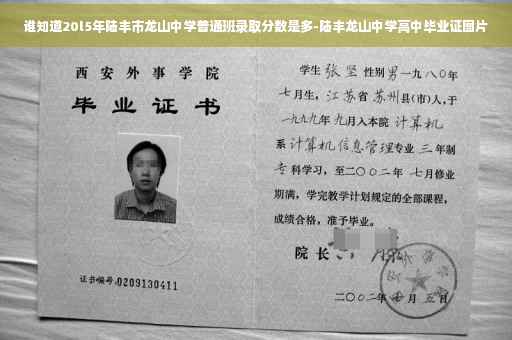 谁知道2015年陆丰市龙山中学普通班录取分数是多-陆丰龙山中学高中毕业证图片
西安外事学院
毕业证书
证书编号:0209130411
学生 张坚 性别 男 一九八〇年
七月生, 江苏省 苏州县(市)人, 于
一九九九年 九月入本院 计算机
系 计算机信息管理专业 三年制
专科学习, 至二〇〇二年 七月修业
期满, 学完教学计划规定的全部课程,
成绩合格, 准予毕业。
院长
二〇〇二年 月五日